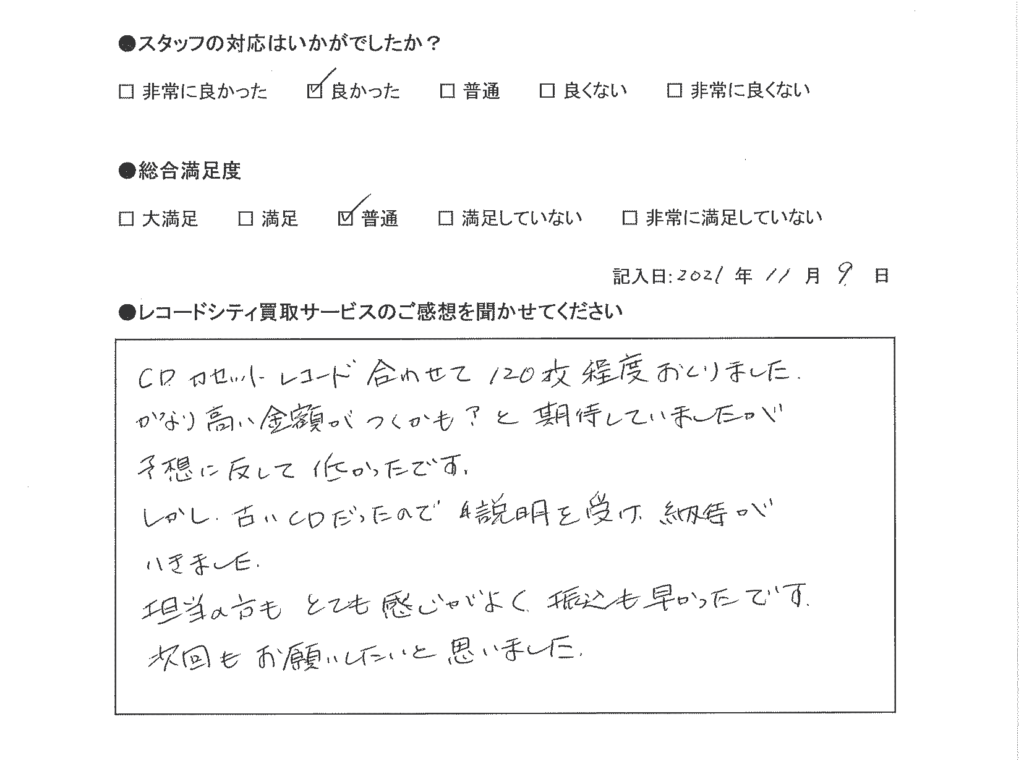 ●スタッフの対応はいかがでしたか？
□ 非常に良かった ☑ 良かった □ 普通 □ 良くない □ 非常に良くない
●総合満足度
□ 大満足 □ 満足 ☑ 普通 □ 満足していない □ 非常に満足していない
記入日:2021 年 11 月 9 日
●レコードシティ買取サービスのご感想を聞かせてください
CD. カセット レコード 合わせて 120枚 程度 おくりました.
かなり 高い 金額が つくかも？と 期待していましたが
予想に 反して 低かったです.
しかし. 古い CDだったので 説明を 受け. 納得が
いきました.
担当の方も とても 感じがよく. 振込も 早かったです.
次回も お願いしたいと 思いました.